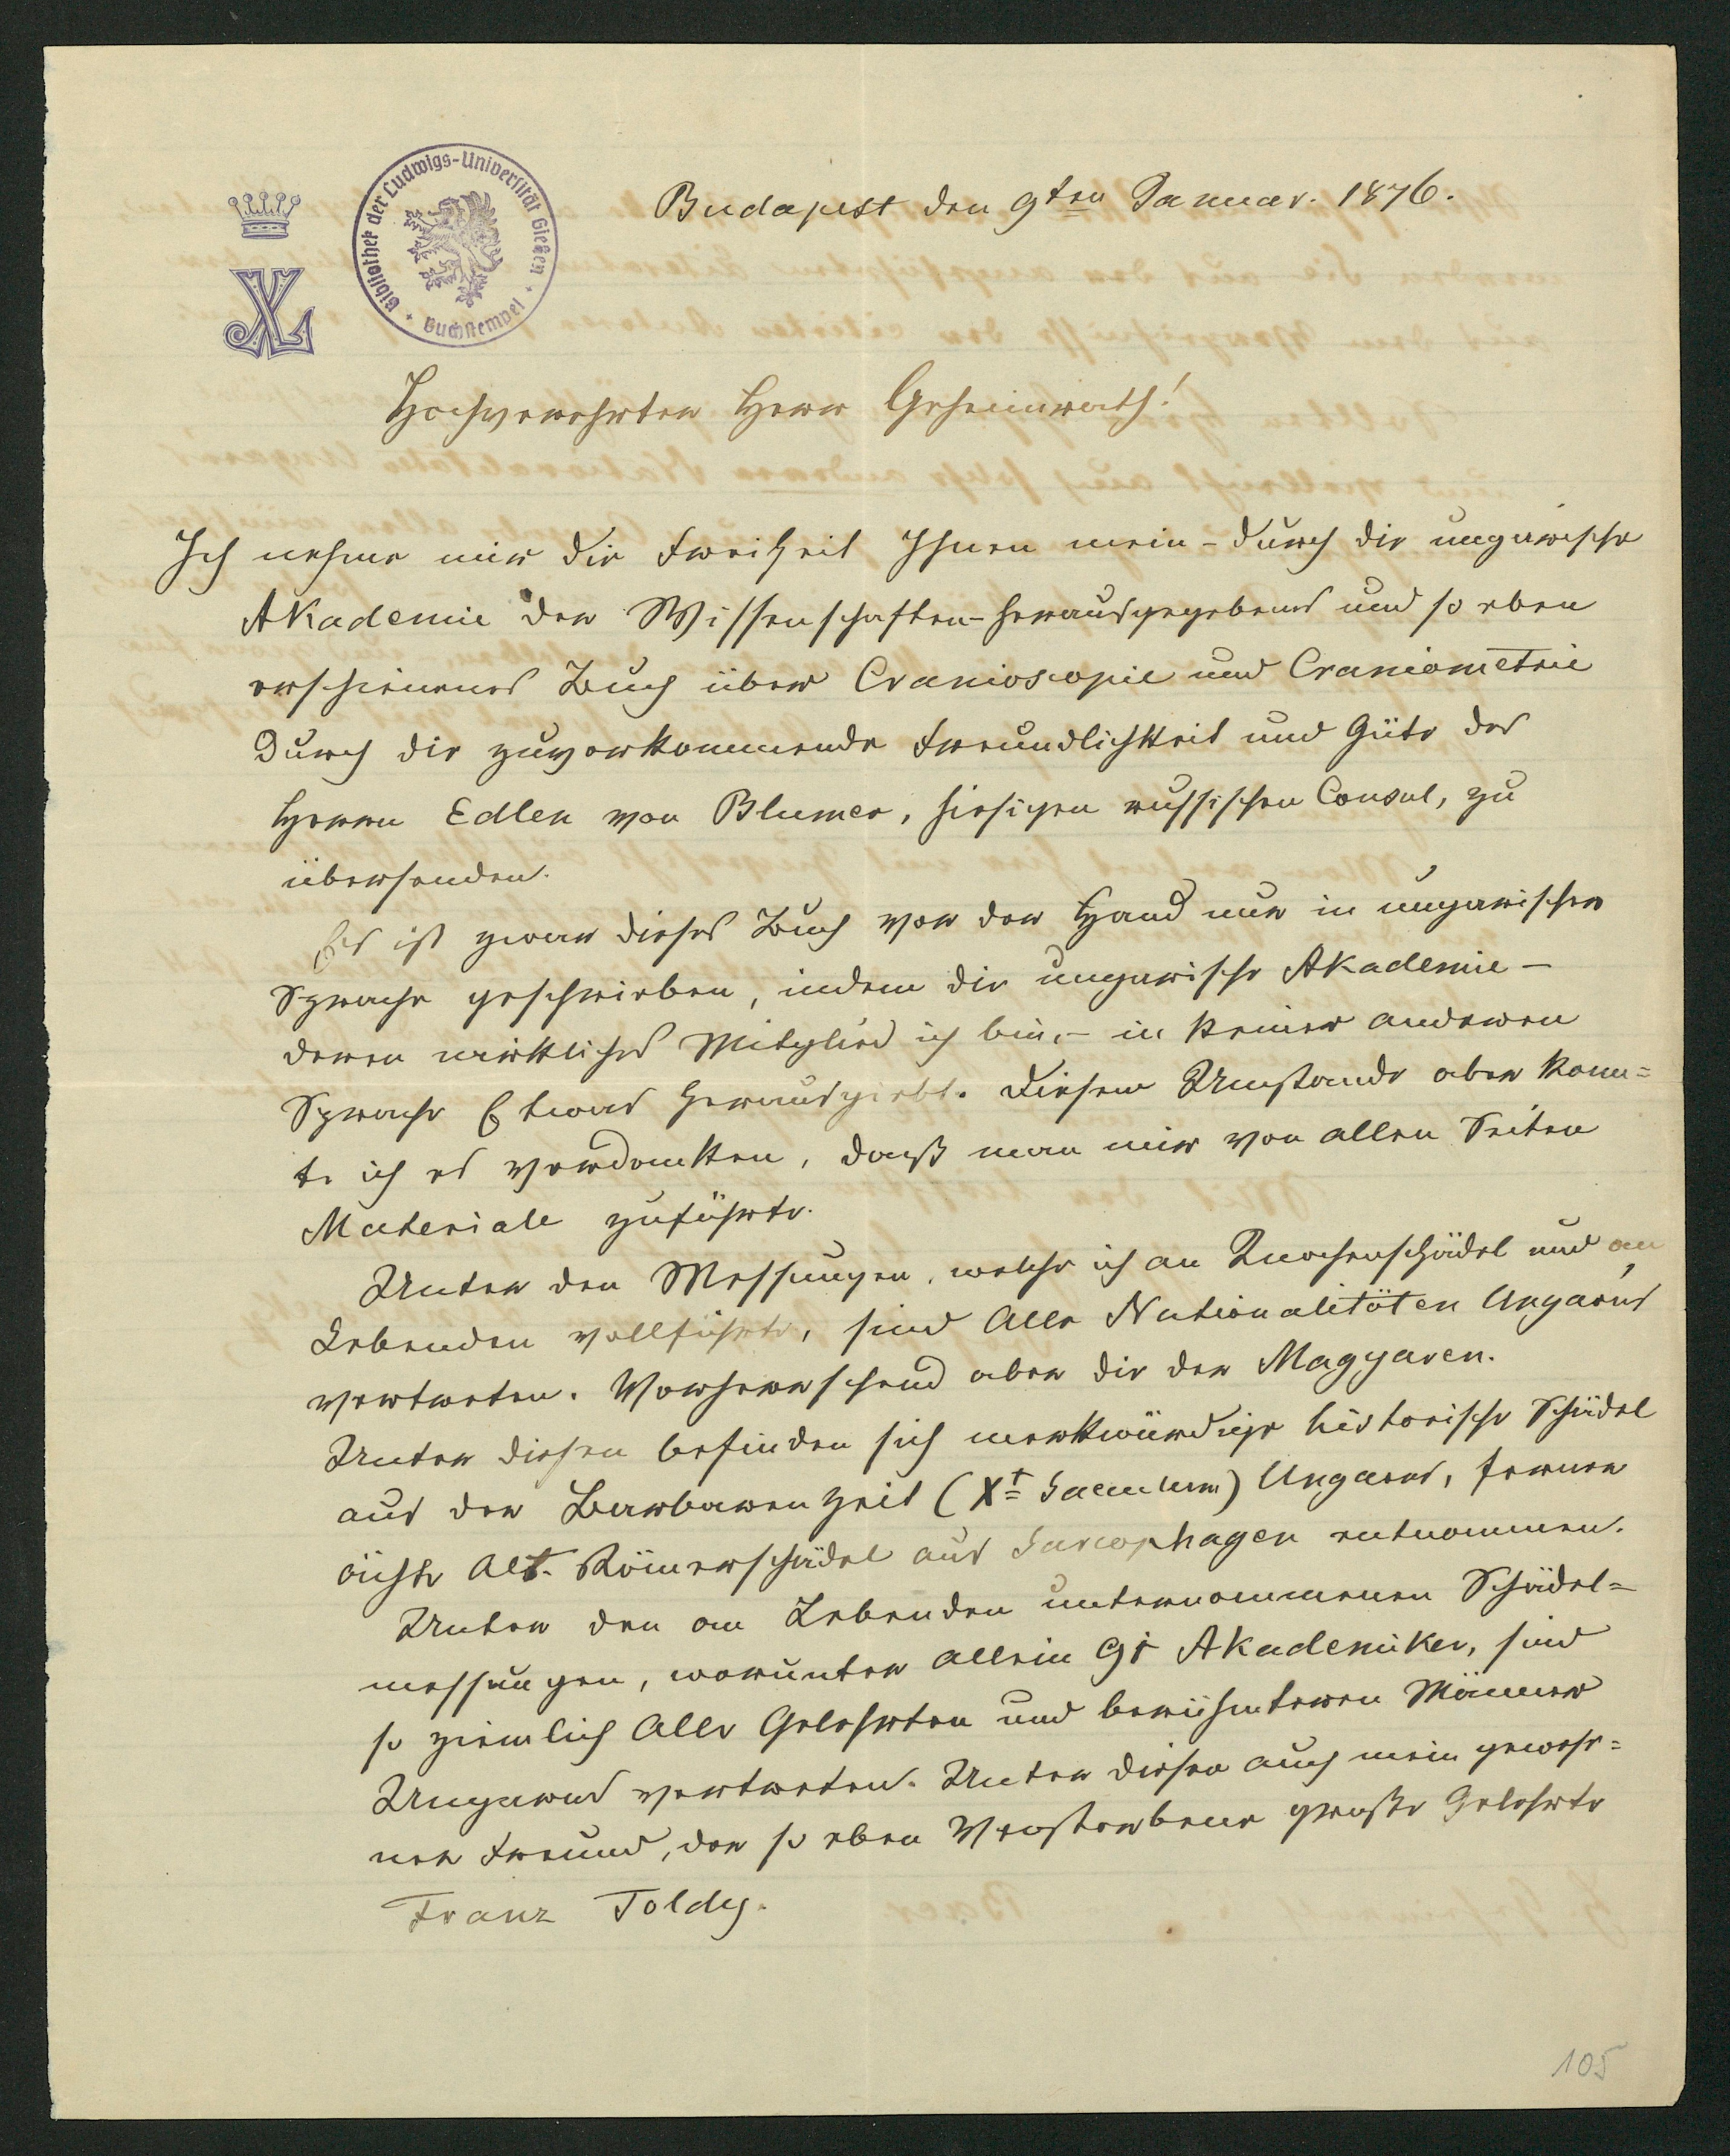 Budapest den 9ten Januar. 1876.
Bibliothek der Ludwigs-Universität Gießen
Buchstempel
Hochverehrter Herr Geheimrath!
Ich nehme mir die Freiheit Ihnen mein - durch die ungarische
Akademie der Wissenschaften - herausgegebenes und so eben
erschienenes Buch über Cranioscopie und Craniometrie
durch die zuvorkommende Freundlichkeit und Güte des
Herrn Edlen von Blumer, hiesigen russischen Consul, zu
übersenden.
Es ist zwar dieses Buch vor der Hand nur in ungarischer
Sprache geschrieben, indem die ungarische Akademie -
deren wirkliches Mitglied ich bin, - in keiner anderen
Sprache Etwas herausgiebt. Diesem Umstande aber konn=
te ich es verdanken, daß man mir von allen Seiten
Materiale zuführte.
Unter den Messungen, welche ich an Knochenschädel und an
Lebenden vollführte, sind Alle Nationalitäten Ungarns
vertreten. Vorherrschend aber die der Magyaren.
Unter diesen befinden sich merkwürdige historische Schädel
aus der Barbarenzeit (Xt Saeculum) Ungarns, ferner
ächte Alt-Römerschädel aus Sarcophagen entnommen.
Unter den am Lebenden unternommenen Schädel=
messungen, worunter allein 91 Akademiker, sind
so ziemlich Alle Gelehrten und berühmteren Männer
Ungarns vertreten. Unter diesen auch mein gewese=
ner Freund, der so eben Verstorbene große Gelehrte
Franz Toldy.
105